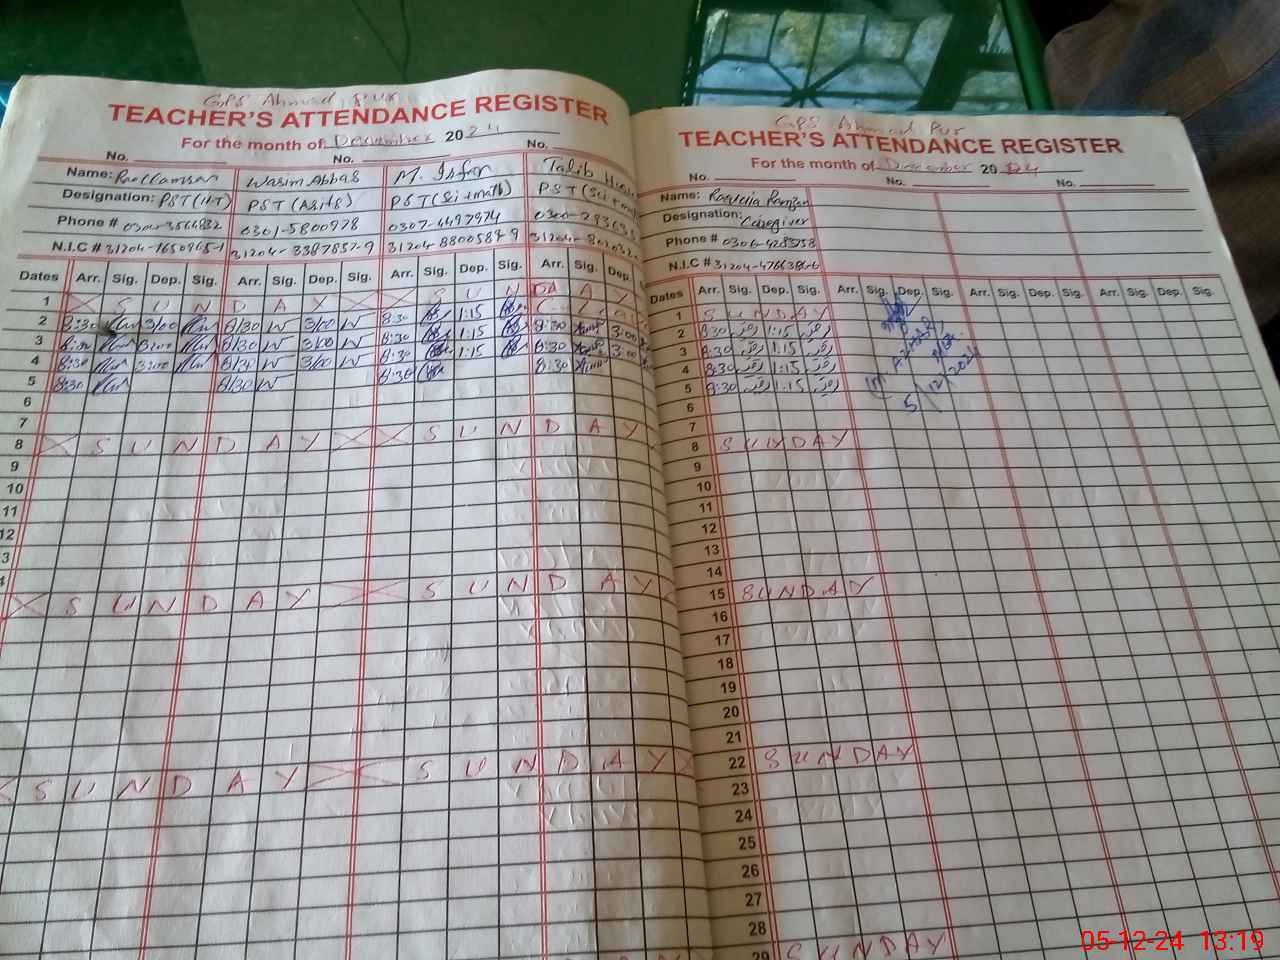 GPS Ahmad Pur
TEACHER'S ATTENDANCE REGISTER
For the month of December 2024
No. No. No.
Name: Wasim Abbas M. Irfan Talib
Designation: PST(H.T) PST(Arts) PST(Sci+math) PST(Sci+m
Phone # 0301-5800778 0307-4497974
N.I.C # 31204-1650965-1 31204-3387857-9 31204-8800589-9
Dates Arr. Sig. Dep. Sig. Arr. Sig. Dep. Sig. Arr. Sig. Dep. Sig. Arr. Sig. Dep.
1 S U N D A Y S U N D A Y
2 8:30 3/00 8/30 W 3/00 W 8:30 1:15 8:30 3:00
3 8:30 3:00 8/30 W 3/00 W 8:30 1:15 8:30 3:00
4 8:30 3:00 8/30 W 3/00 W 8:30 1:15 8:30 3:00
5 8:30 8/30 W 8:30 8:30
6
7
8 S U N D A Y S U N D A Y
9
10
11
12
3
S U N D A Y S U N D A Y
S U N D A Y S U N D A Y
GPS Ahmad Pur
TEACHER'S ATTENDANCE REGISTER
For the month of December 2024
No. No. No.
Name: Ramzan
Designation: Caregiver
Phone # 0306-4283758
N.I.C # 31204-4766386-6
Dates Arr. Sig. Dep. Sig. Arr. Sig. Dep. Sig. Arr. Sig. Dep. Sig. Arr. Sig. Dep. Sig.
1 S U N D A Y
2 8:30 1:15
3 8:30 1:15
4 8:30 1:15
5 8:30 1:15
5/12/2024
6
7
8 S U N D A Y
9
10
11
12
13
14
15 S U N D A Y
16
17
18
19
20
21
22 S U N D A Y
23
24
25
26
27
28
29 S U N D A Y
05-12-24 13:19